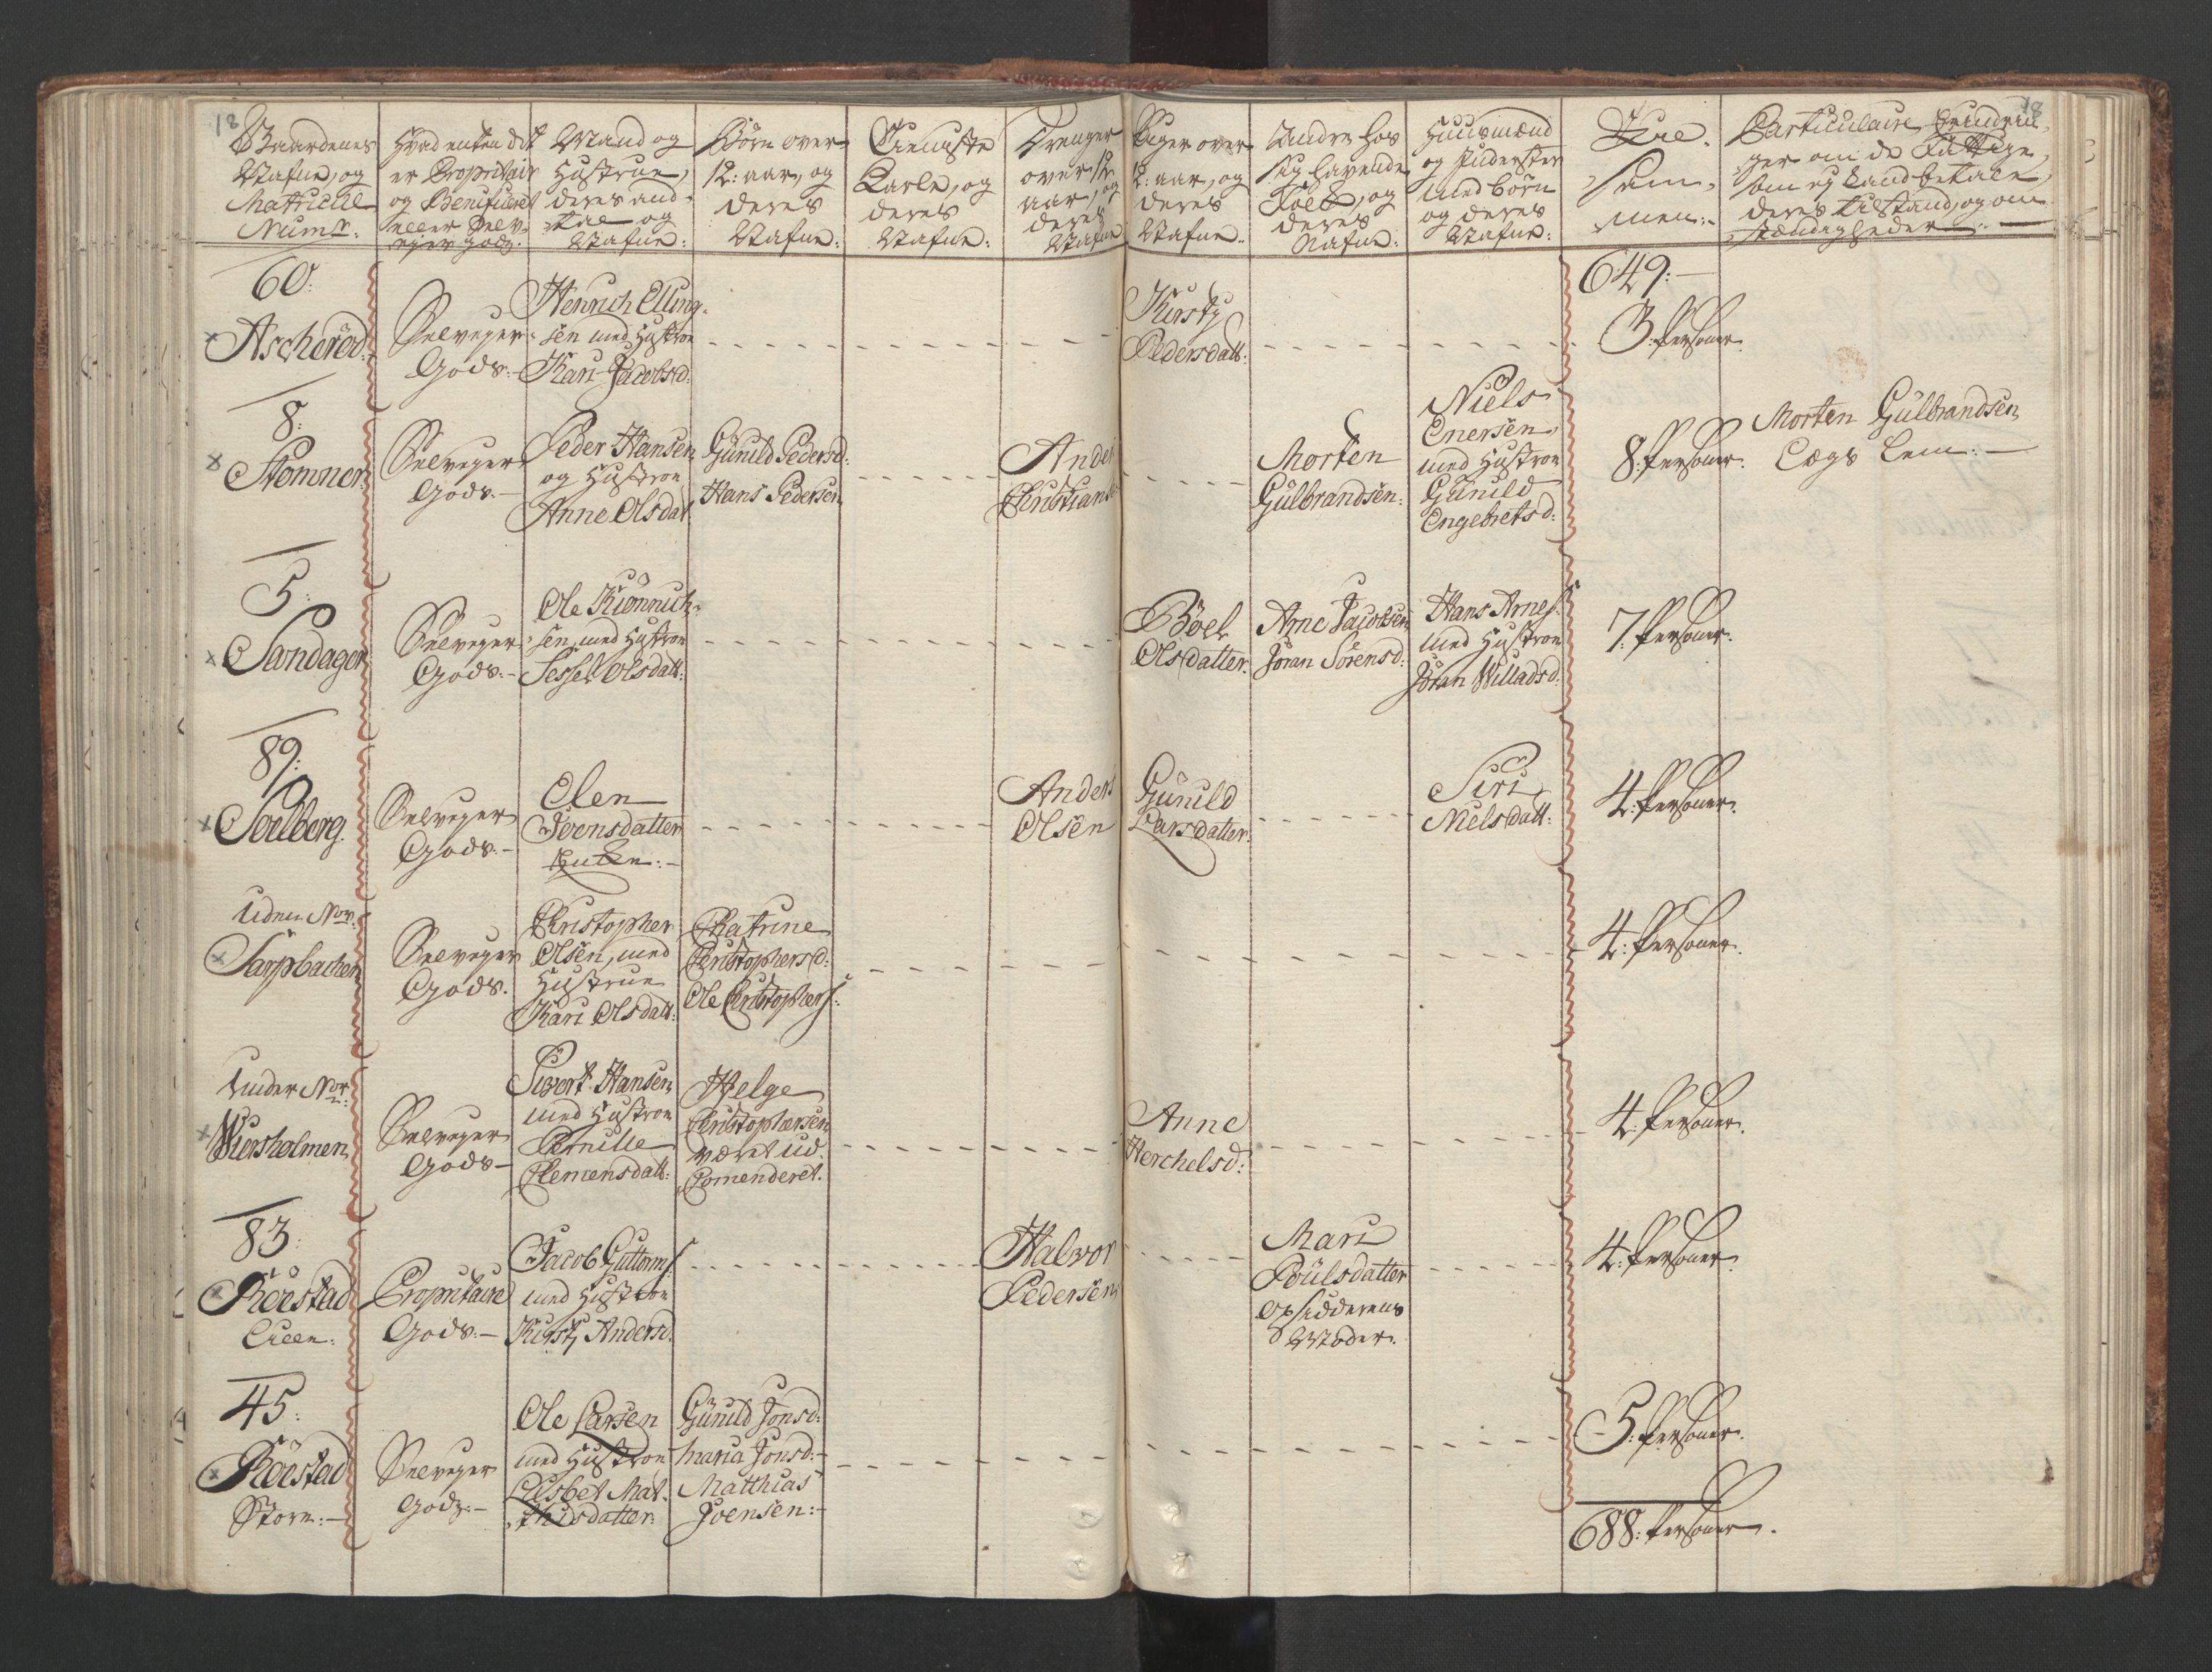 18
Gaardenes
Nafne, og
Matricul
Numr.
Hvad enten dit
er Proprietair
og Beneficeret
eller Selv-
eyer Godz.
Mand og
Hustrue,
deres and-
tal og
Nafne:
Börn over
12: aar, og
deres
Nafne:
Tieniste
Karle, og
deres
Nafne:
Drenger
over 12
aar, og
deres
Nafne
Piger over
12: aar, og
deres
Nafne.
Andre hos
sig havende
Folk, og
deres
Nafne:
Huusmænd
og Inderster
med börn
og deres
Nafne:
Til-
sam-
men:
18
Particulaire Erindrin-
ger om de Fattige,
som ey kand betale,
deres tilstand, og om-
stændigheder
60:
Ascheröd
Selveyer
Gods.
Henrich Elling-
sen med Hustroe
Kari Jacobsd:
Kirsty
Pedersdatt:
649:
3: Persohner.
8:
Stomner
Selveyer
Gods.
Peder Hansen
og Hustroe
Anne Olsdat
Gunild Pedersd:
Hans Pedersen
Ander
Christians
Morten
Gulbrandsen:
Niels
Enersen
med Hustroe
Gunild
Engebretsd:
8: Persohner.
Morten Gulbrandsen
Legs Lem:
5:
Sandager
Selveyer
Gods.
Ole Kionnich-
sen, med Hustroe
Sessel Olsdatt:
Böel
Olsdatter.
Arne Jacobsen
Joran Sörensd:
Hans Arnes:
med Hustroe
Joran Willadsd:
7: Persohner.
89:
Soelberg
Selveyer
Gods.
Elen
Joensdatter
Enke:
Anders
Olsen
Gunild
Larsdatter.
Siri
Nielsdatt:
4: Persohner.
Uden Nor:
Sarpbachen
Selveyer
Gods.
Christopher
Olsen, med
Hustrue
Kari Olsdatt:
Chatrine
Christophersd:
Ole Christophers:
4: Persohner.
Under Nor:
Wiersholmen
Selveyer
Gods
Siwert Hansen
med Hustroe
Pernille
Clemensdatt:
Helge
Christophersen
været ud.
Comenderet.
Anne
Herchelsd:
4: Persohner.
83:
Röestad
Lille:
Proprietaire
Gods.
Jacob Guttorms:
med Hustroe
Kirsty Andersd:
Halvor
Pedersen
Mari
Poulsdatter
Opsidderens
Moder.
4: Persohner.
45:
Röestad
Store:
Selveyer
Godz:
Ole Larsen
med Hustroe
Lisbet Mat-
thisdatter:
Gunild Jonsd:
Maria Jonsd:
Matthias
Joensen:
5: Persohner.
688: Persohner.